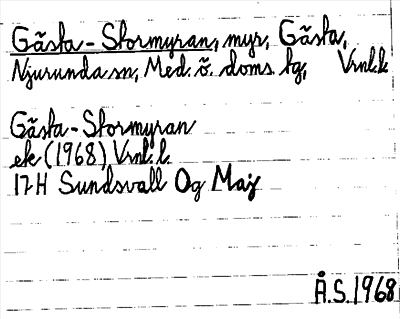 Gåsta-Stormyran, myr, Gåsta,
Njurunda sn, Med. ö. doms. tg, Vrnl. k
Gåsta-Stormyran
ek (1968) Vrnl. l.
17H Sundsvall Og Maj
Å.S. 1968